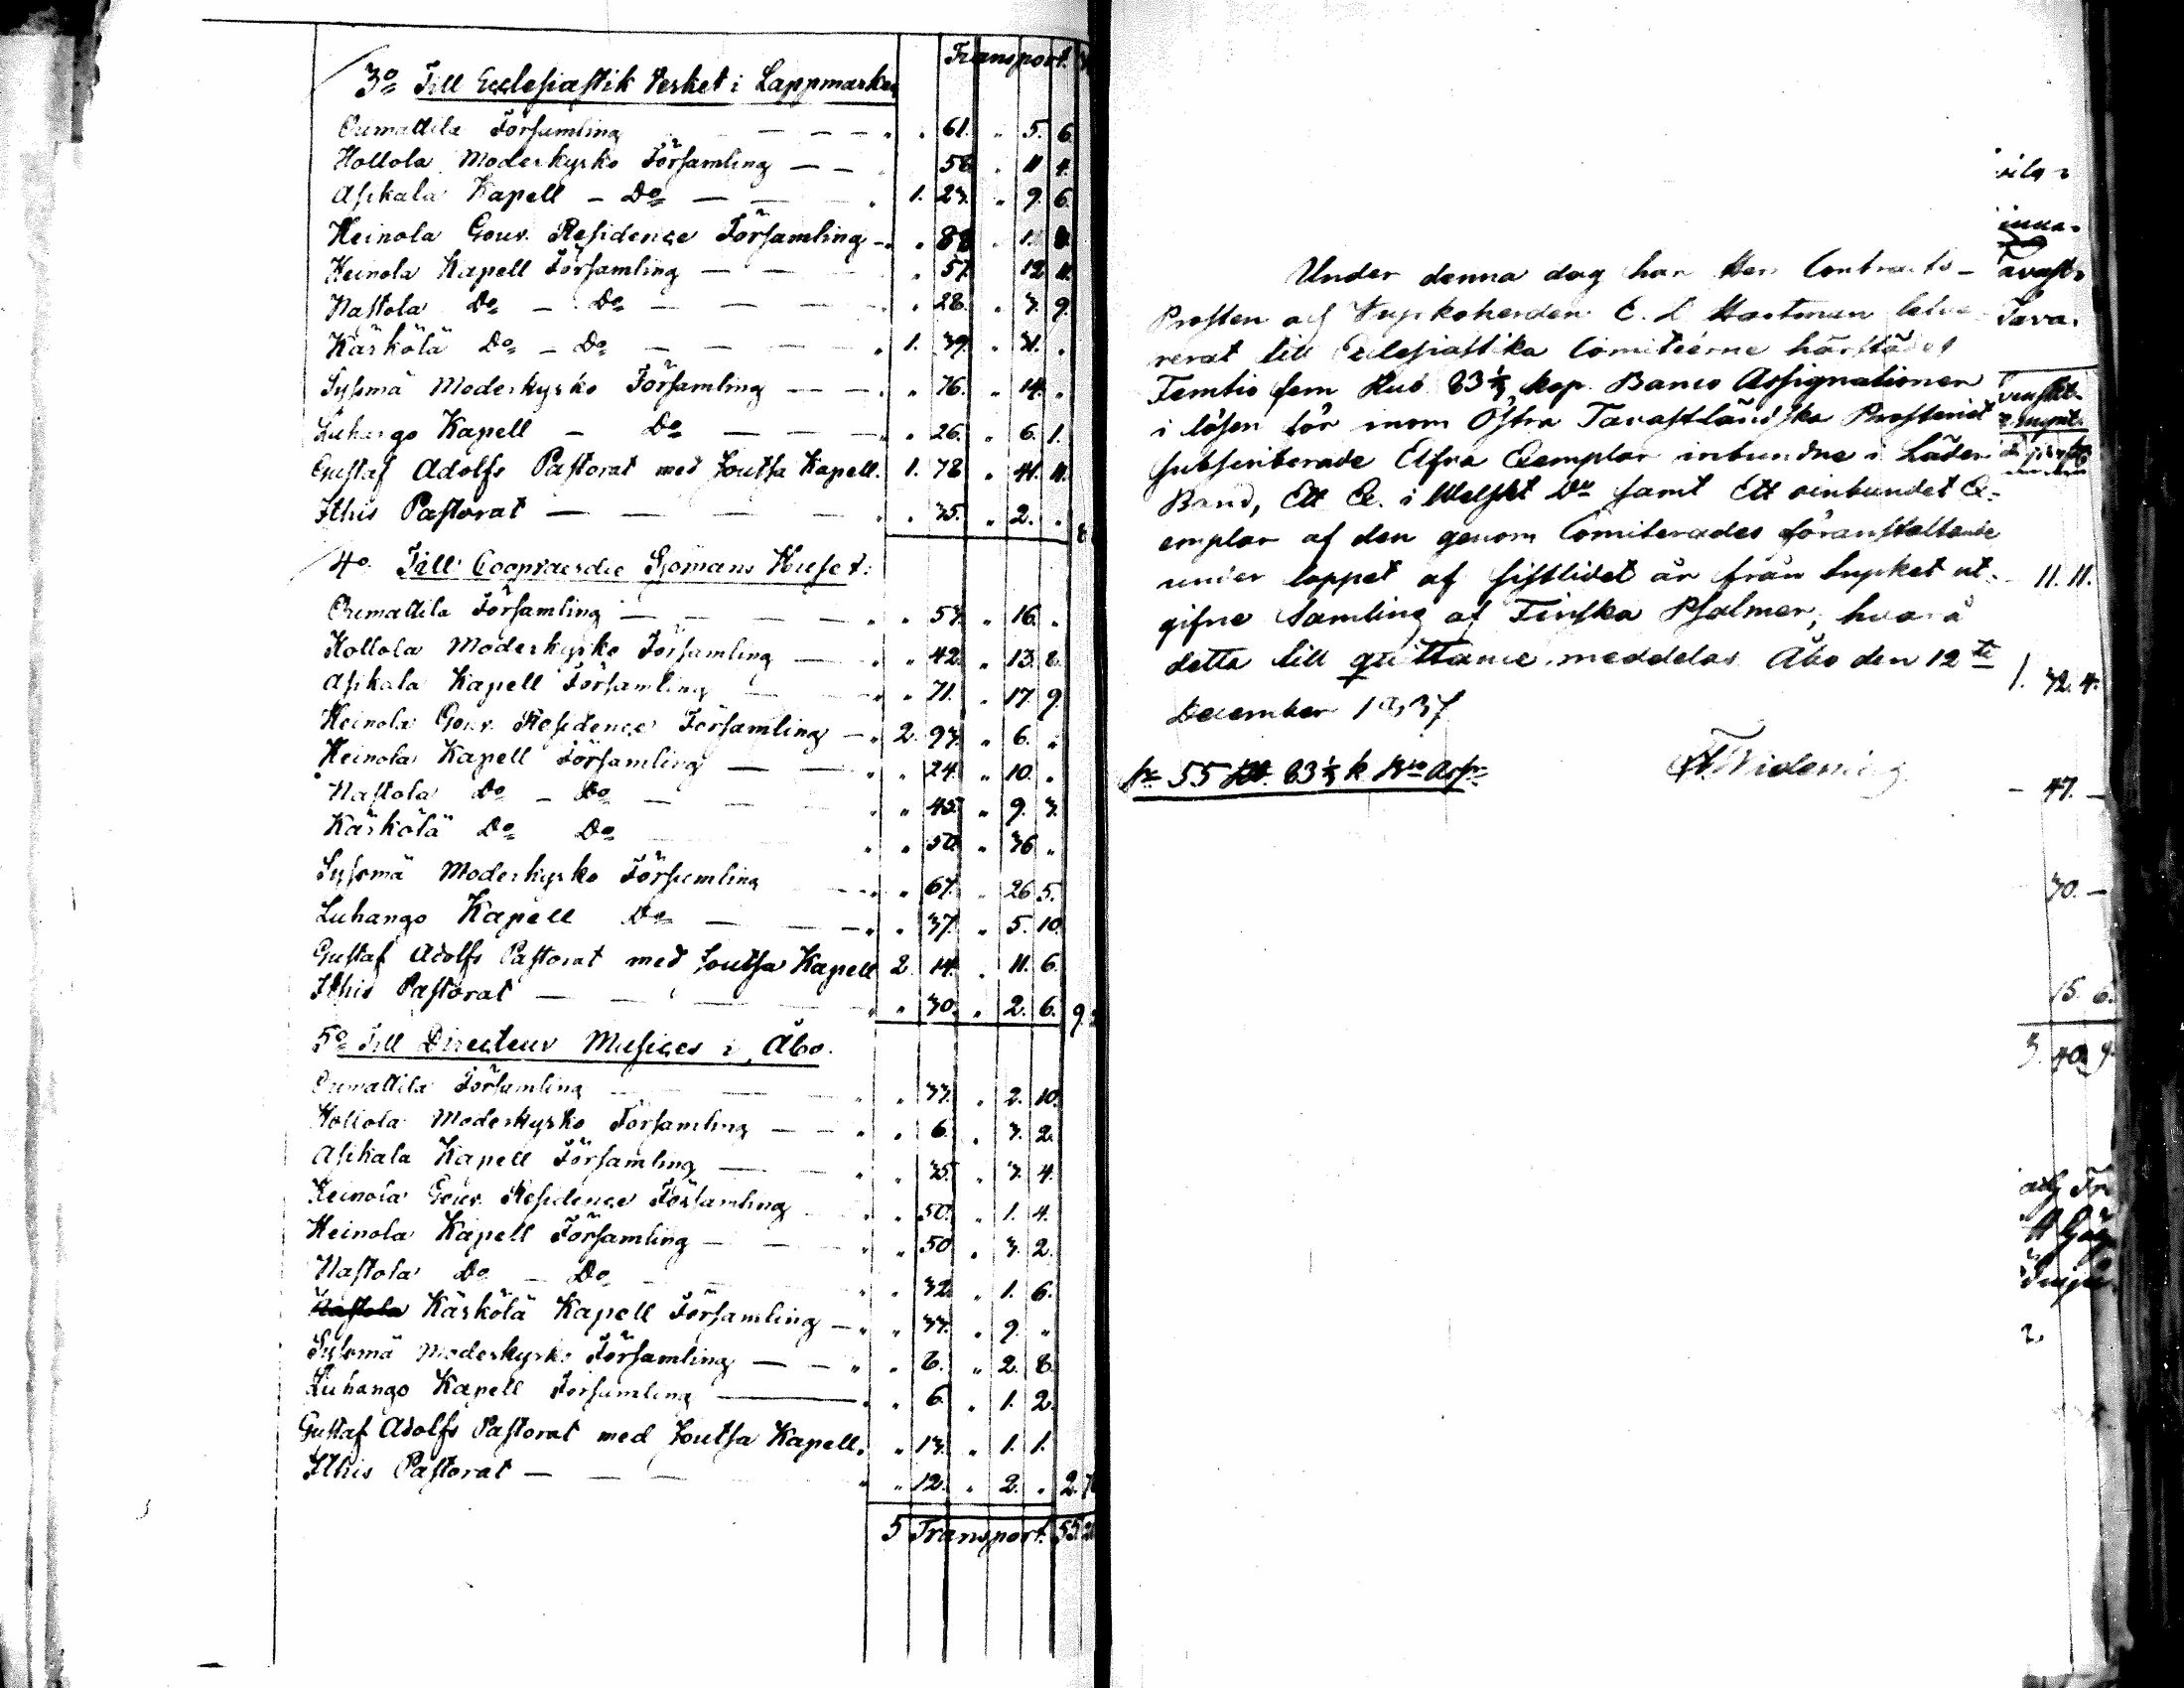 Transport.
3o Till Ecclesiastik Verket i Lappmarken
Orimattila Församling — — — " " 61. " 5. 6.
Hollola Moderkyrko Församling — — 58. " 11 4.
Asikala Kapell — Do — — " 1. 23. " 9. 6.
Heinola Gouv. Residence Församling — " " 88 " 1. 8.
Heinola Kapell Församling — — " 57. 12 11.
Nastola Do — Do — — — " 28. " 3. 9.
Kärkölä Do — Do — — — " 1. 39. " 31. "
Sysmä Moderkyrko Församling — — " " 76. " 14. "
Luhango Kapell — Do — — — " " 26. " 6. 1.
Gustaf Adolfs Pastorat med Joutsa Kapell. 1. 78 " 41. 11.
Ithis Pastorat — — — — " " 35. " 2. "
4o Till Sjömans Huset:
Orimattila Församling — — — — " " 53. " 16. "
Hollola Moderkyrko Församling — " " 42. " 13. 8.
Asikala Kapell Församling — — " " 71. " 17. 9
Heinola Gouv. Residence Församling — " 2. 93. " 6. "
Heinola Kapell Församling — — " " 24. " 10. "
Nastola Do — Do — — " " 45. " 9. 3.
Kärkölä Do Do " " 50. " 36 "
Sysmä Moderkyrko Församling — " " 67. " 26 5.
Luhango Kapell Do — — " " 37. " 5. 10.
Gustaf Adolfs Pastorat med Joutsa Kapell 2. 14. " 11. 6.
Ithis Pastorat — — — " " 30. " 2. 6. 9.
5o Till Directeur Musices i Åbo.
Orimattila Församling — — " " 33. " 2. 10.
Hollola Moderkyrko Församling — — " " 6. " 3. 2.
Asikala Kapell Församling — — " " 35. " 3. 4.
Heinola Gouv. Residence Församling " " 50. " 1. 4.
Heinola Kapell Församling — — " " 50 " 3. 2.
Nastola Do — Do — " " 32. " 1. 6.
Nastola Kärkölä Kapell Församling — " " 33. " 9. "
Sysmä Moderkyrko Församling — — " " 8. " 2. 8.
Luhango Kapell Församling — " " 6. " 1. 2.
Gustaf Adolfs Pastorat med Joutsa Kapell. " 13. " 1. 1.
Ithis Pastorat — — — " " 12. " 2. " 2.
5 Transport. 55.
Under denna dag har Herr Contracts-
Prosten och Kyrkoherden E. Hartman
rerat till Ecclesiastika Comitéerne härstädes
Femtio fem Rub. 83 1/3 kop. Banco Assignationer
i lösen för inom Östra Tavastländska Prosteriet
subscriberade Elfva Exemplar inbundne i Läder
Band, Ett Ex. i Welskt Do samt Ett oinbundet Ex-
emplar af den genom Comiterades föranstaltande
under loppet af sistlidet år från trycket ut-
gifne Samling af Finska Psalmer, hvarå
detta till quittance meddelas. Åbo den 12te
December 1837
55 83 1/3 k
11. 11.
1. 32. 4.
— 47. —
30. —
15. 6.
3. 40. 9